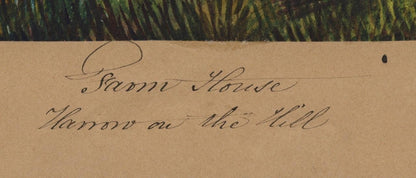 Farm House
Harrow on the Hill